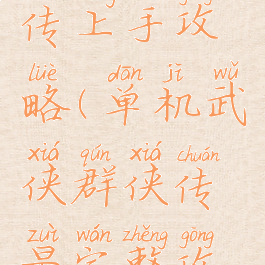 传上手攻
lüè dān jī wǔ
略(单机武
xiá qún xiá chuán
侠群侠传
zuì wán zhěng gōng
最完整攻